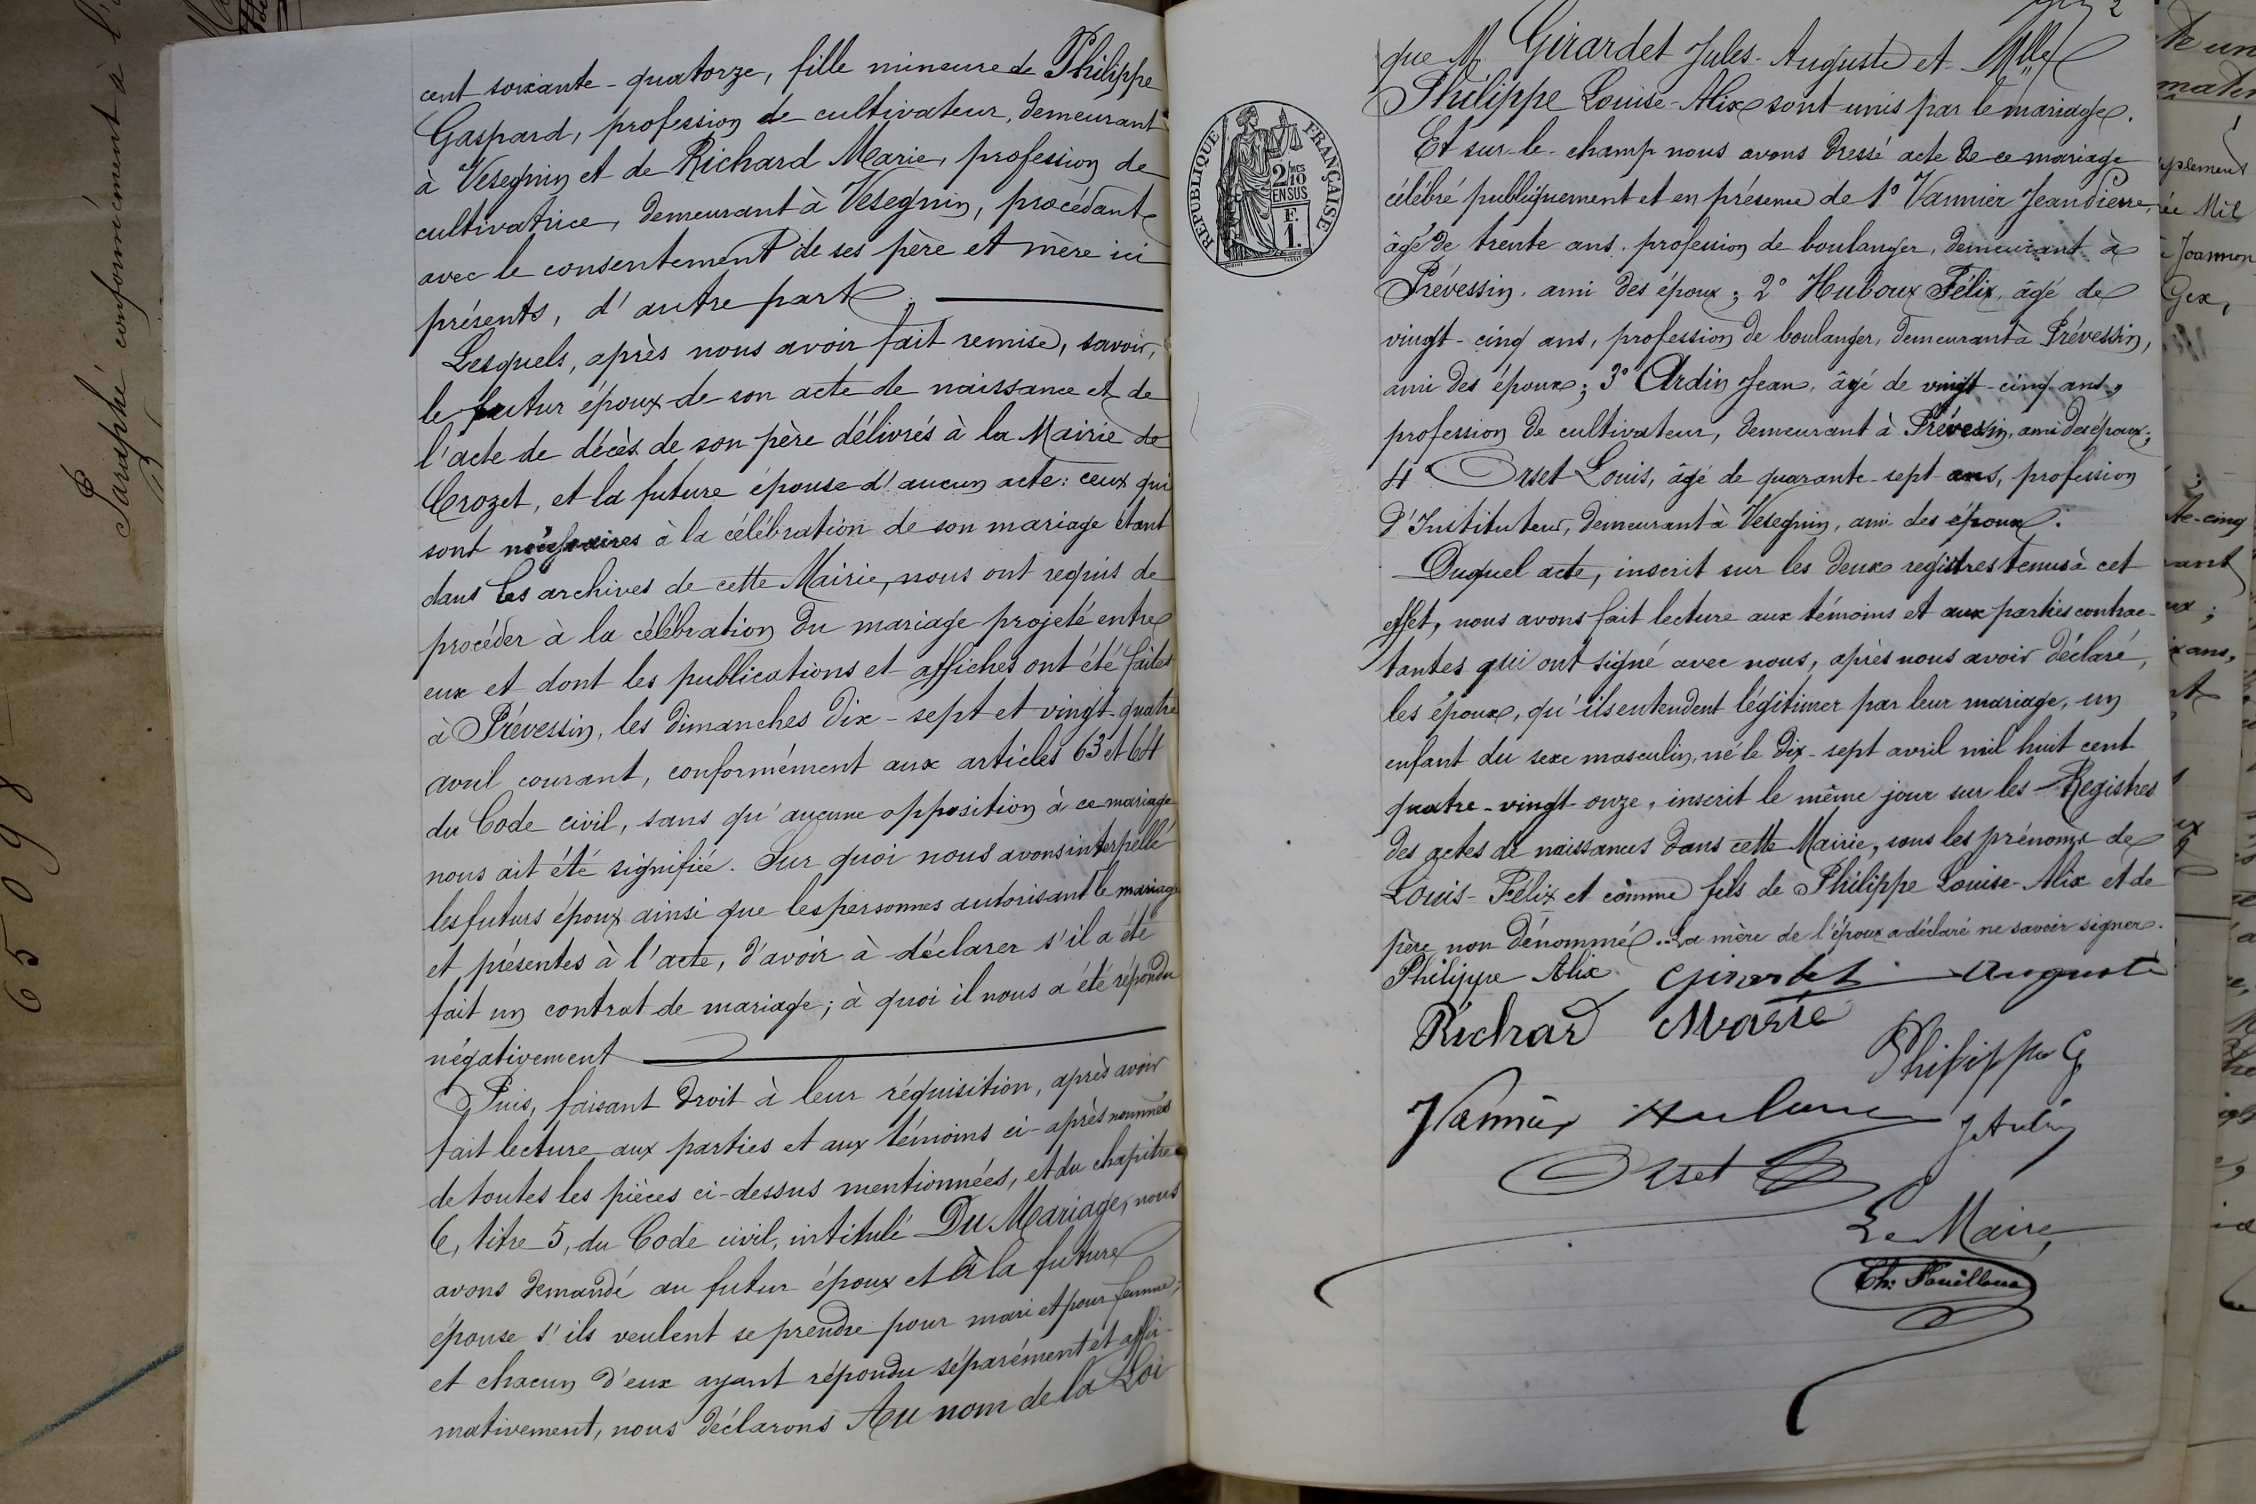 Paraphé conformément à l'
65098
cent soixante-quatorze, fille mineure de Philippe
Gaspard, profession de cultivateur, demeurant
à Vesegnin et de Richard Marie, profession de
cultivatrice, demeurant à Vesegnin, procédant
avec le consentement de ses père et mère ici
présents, d'autre part.
Lesquels, après nous avoir fait remise, savoir,
le futur époux de son acte de naissance et de
l'acte de décès de son père délivrés à la Mairie de
Crozet, et la future épouse d'aucun acte: ceux qui
sont nécessaires à la célébration de son mariage étant
dans les archives de cette Mairie, nous ont requis de
procéder à la célébration du mariage projeté entre
eux et dont les publications et affiches ont été faites
à Prévessin, les dimanches dix-sept et vingt-quatre
avril courant, conformément aux articles 63 et 64
du Code civil, sans qu'aucune opposition à ce mariage
nous ait été signifiée. Sur quoi nous avons interpellé
les futurs époux ainsi que les personnes autorisant le mariage
et présentes à l'acte, d'avoir à déclarer s'il a été
fait un contrat de mariage; à quoi il nous a été répondu
négativement
Puis, faisant droit à leur réquisition, après avoir
fait lecture aux parties et aux témoins ci-après nommés
de toutes les pièces ci-dessus mentionnées, et du chapitre
6, titre 5, du Code civil, intitulé Du Mariage, nous
avons demandé au futur époux et à la future
épouse s'ils veulent se prendre pour mari et pour femme;
et chacun d'eux ayant répondu séparément et affir-
mativement, nous déclarons Au nom de la Loi
2
que M. Girardet Jules-Auguste et Mlle
Philippe Louise-Alix sont unis par le mariage.
Et sur-le-champ nous avons dressé acte de ce mariage
célébré publiquement et en présence de 1° Vannier Jean Pierre,
âgé de trente ans, profession de boulanger, demeurant à
Prévessin, ami des époux; 2° Huboux Félix, âgé de
vingt-cinq ans, profession de boulanger, demeurant à Prévessin,
ami des époux; 3° Ardin Jean, âgé de vingt-cinq ans,
profession de cultivateur, demeurant à Prévessin, ami des époux;
4° Orset Louis, âgé de quarante-sept ans, profession
d'Instituteur, demeurant à Vesegnin, ami des époux.
Duquel acte, inscrit sur les deux registres tenus à cet
effet, nous avons fait lecture aux témoins et aux parties contrac-
tantes qui ont signé avec nous, après nous avoir déclaré,
les époux, qu'ils entendent légitimer par leur mariage, un
enfant du sexe masculin, né le dix-sept avril mil huit cent
quatre-vingt onze, inscrit le même jour sur les Registres
des actes de naissances dans cette Mairie, sous les prénoms de
Louis-Félix et comme fils de Philippe Louise-Alix et de
père non dénommé. La mère de l'époux a déclaré ne savoir signer.
Philippe Alix Girardet Auguste
Richard Marie
Philippe G
Vannier Huboux
J Ardin
Orset
Le Maire,
RÉPUBLIQUE FRANÇAISE
2/10 EN SUS
F.
1.
te un
plement
Mil
Joannon
Gex,
te-cinq
ans,